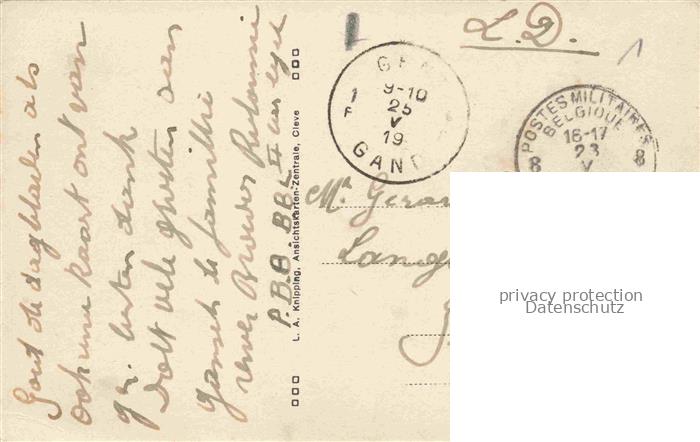 Gont de dagbladen als
ook uwe kaart ont van
gen. besten dank
Doet vele groeten aan
gansch de familie
uwen Broeder
P.B.B. BBL II
L. A. Knipping, Ansichtskarten-Zentrale, Cleve
L. D.
GE
9-10
1 25
F V
19
GAND
POSTES MILITAIRES
BELGIQUE
16-17
8 23 8
V
Mr. Gera
Lang
privacy protection
Datenschutz